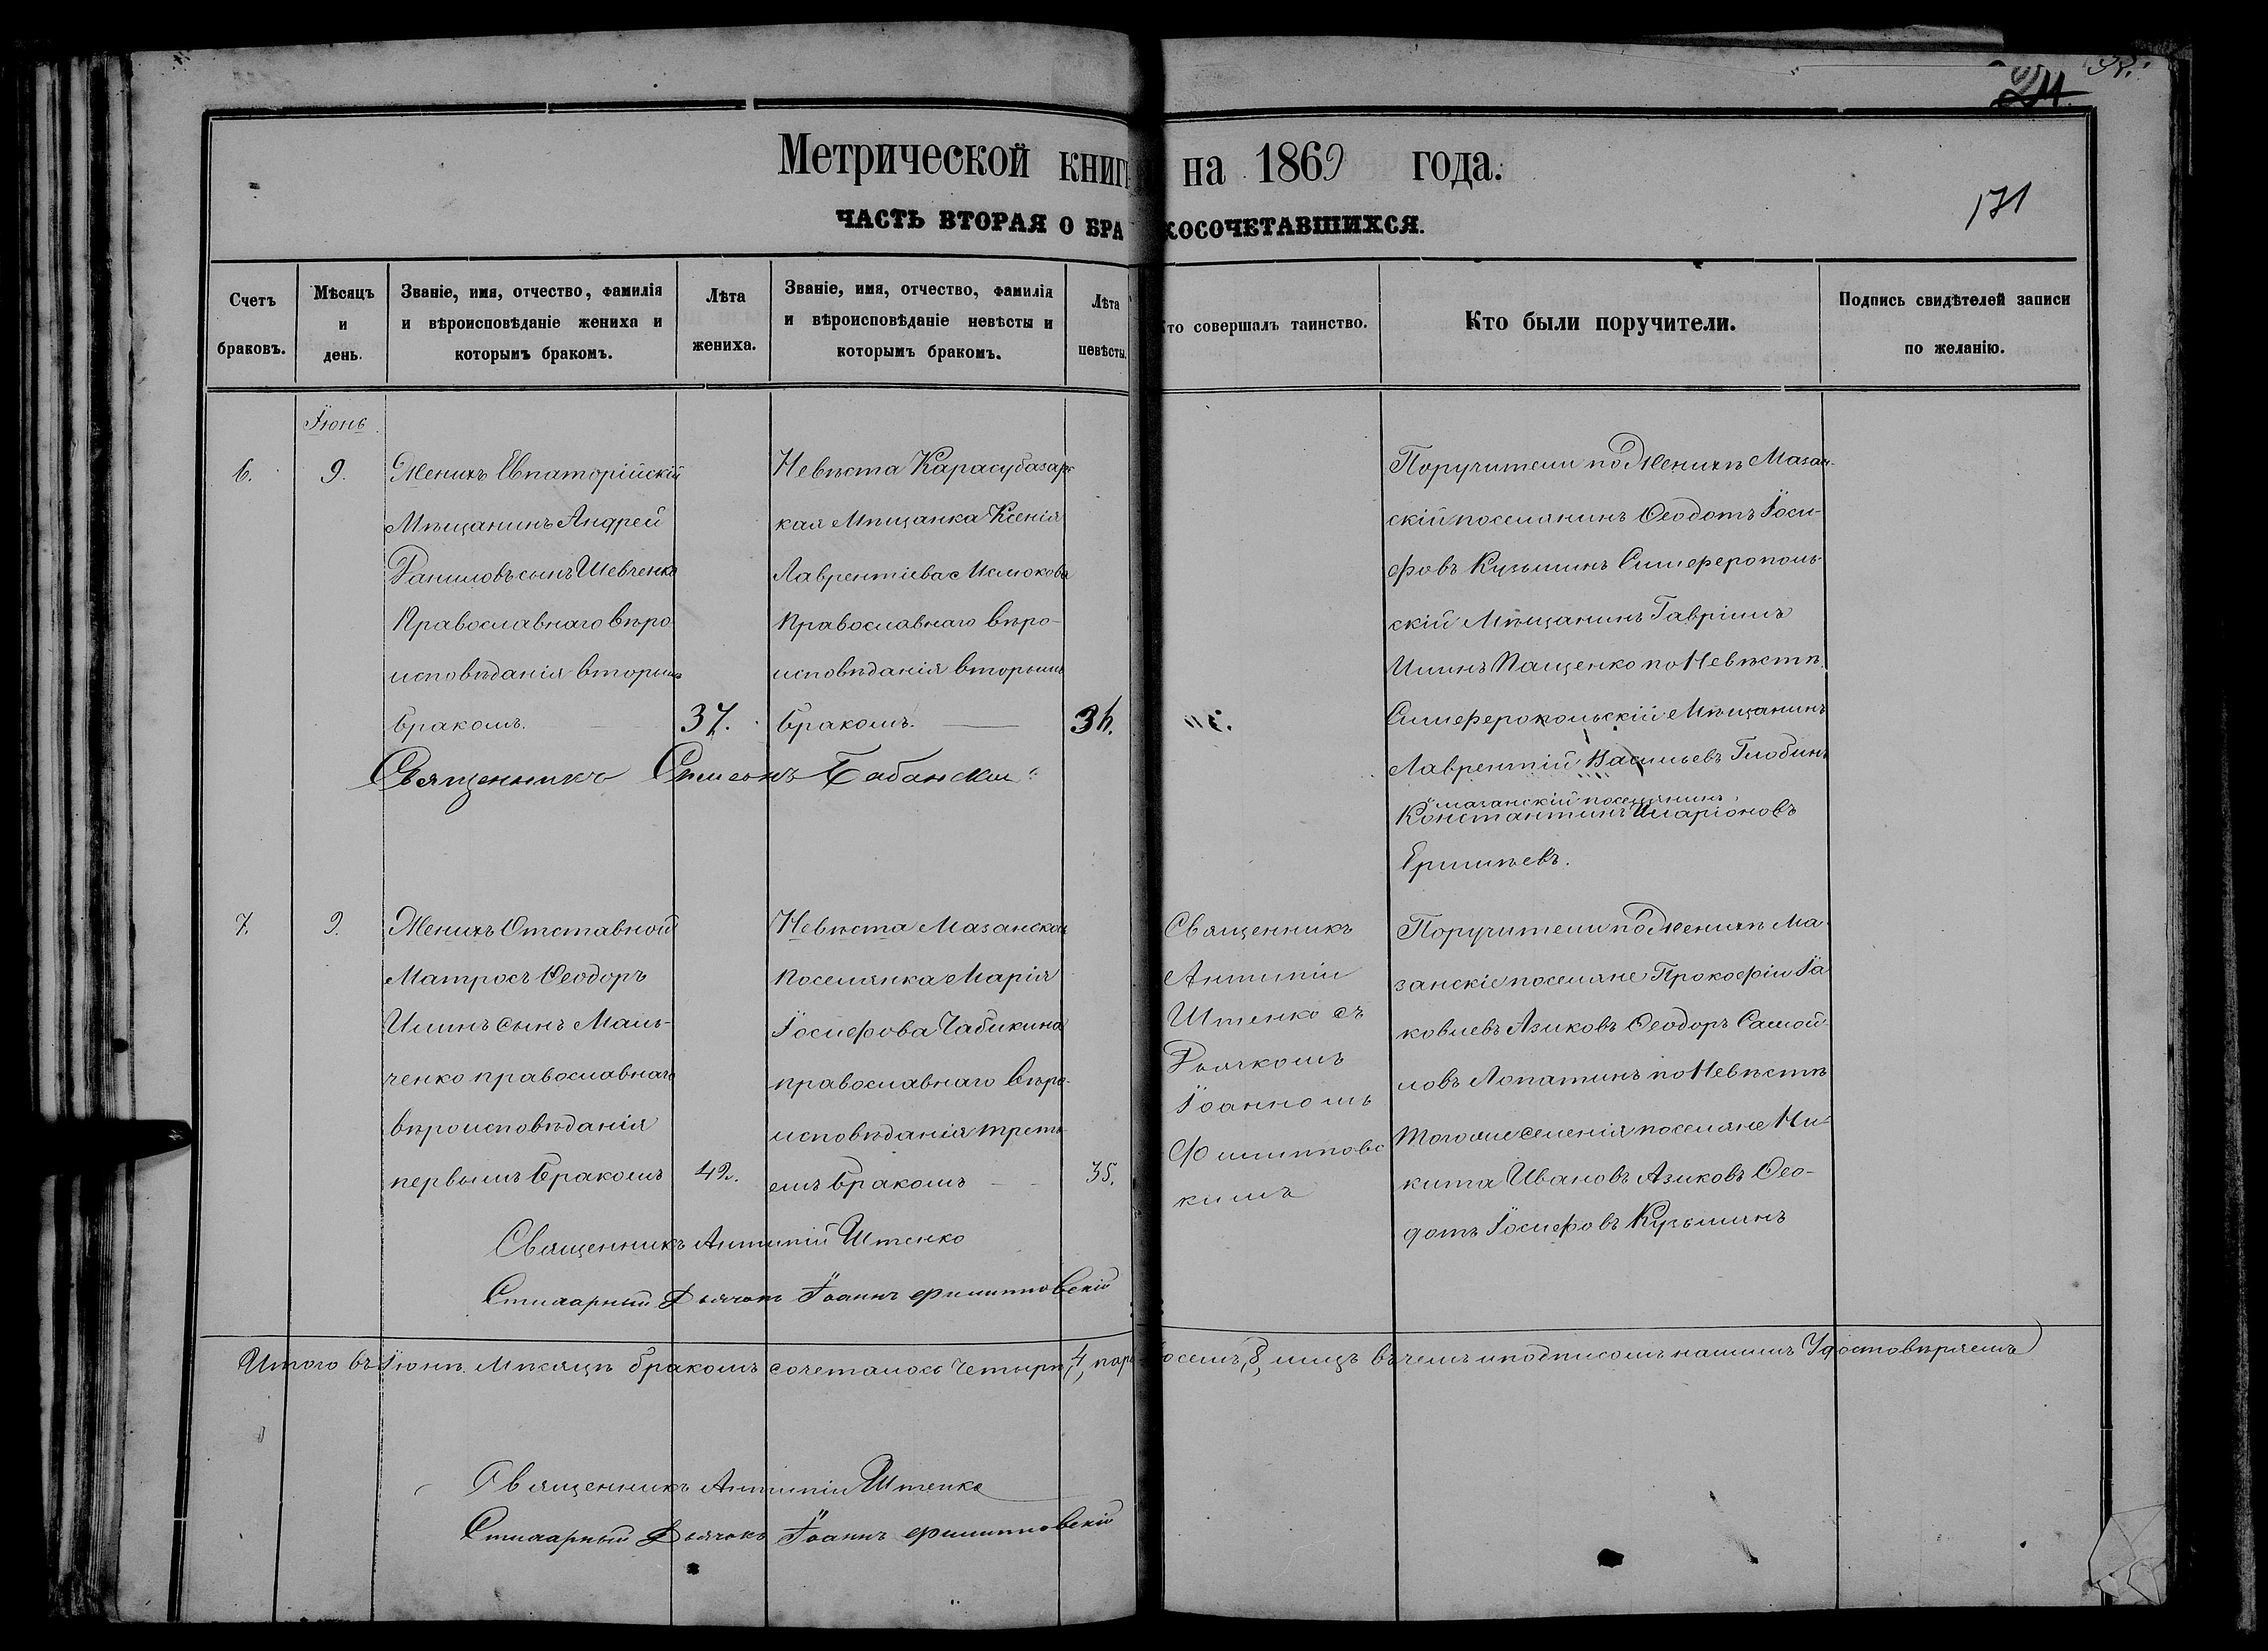 24
Метрической книг на 1869 года.
171
ЧАСТЬ ВТОРАЯ О БРАКОСОЧЕТАВШИХСЯ.
Счетъ браковъ.
Мѣсяцъ и день.
Званіе, имя, отчество, фамилія
и вѣроисповѣданіе жениха и
которымъ бракомъ.
Лѣта жениха.
Званіе, имя, отчество, фамилія
и вѣроисповѣданіе невѣсты и
которымъ бракомъ.
Лѣта невѣсты.
то совершалъ таинство.
Кто были поручители.
Подпись свидѣтелей записи
по желанію.
Іюнь
6.
9.
Женихъ Евпаторійскій
Мѣщанинъ Андрей
Даниловъ сынъ Шевченко
Православнаго вѣро
исповѣданія вторымъ
бракомъ.
37.
Невѣста Карасубазарс
кая Мѣщанка Ксенія
Лаврентіева
Православнаго вѣро-
исповѣданія вторымъ
бракомъ.
Поручители по Женихѣ Мазан-
скій поселянинъ Ѳеодотъ Іоси-
фовъ Кузьминъ Симферополь-
скій Мѣщанинъ Гавріилъ
Ильинъ Пащенко по Невѣстѣ
Симферопольскій Мѣщанинъ
Лаврентій Васильевъ Глобинъ
поселянинъ
Константинъ Иларіоновъ
Священникъ Симеонъ Бабанскій
7.
9.
Женихъ Отставной
Матросъ Ѳеодоръ
Ильинъ сынъ Маль-
ченко православнаго
вѣроисповѣданія
первымъ бракомъ
42.
Невѣста Мазанская
поселянка Марія
Іосифова Чабикина
православнаго вѣро-
исповѣданія треть-
емъ бракомъ
35.
Священникъ
Антипій
Штенко съ
Дьячкомъ
Іоанномъ
Филипповс
кимъ
Поручители по Женихѣ Ма-
занскіе поселяне Прокофій Іа
ковлевъ Азиковъ Ѳеодоръ Самой-
ловъ Лопатинъ по Невѣстѣ
тогоже селенія поселяне Ни-
кита Ивановъ Азиковъ Ѳео-
дотъ Іосифовъ Кузьминъ
Священникъ Антипій Штенко
Стихарный Дьячокъ Іоаннъ Филипповскій
Итого въ Іюнѣ Мѣсяцѣ бракомъ сочеталось четыри, 4, пары осемь, 8, лицъ въ чемъ и подписомъ нашимъ Удостовѣряемъ
Священникъ Антипій Штенко
Стихарный Дьячокъ Іоаннъ Филипповскій